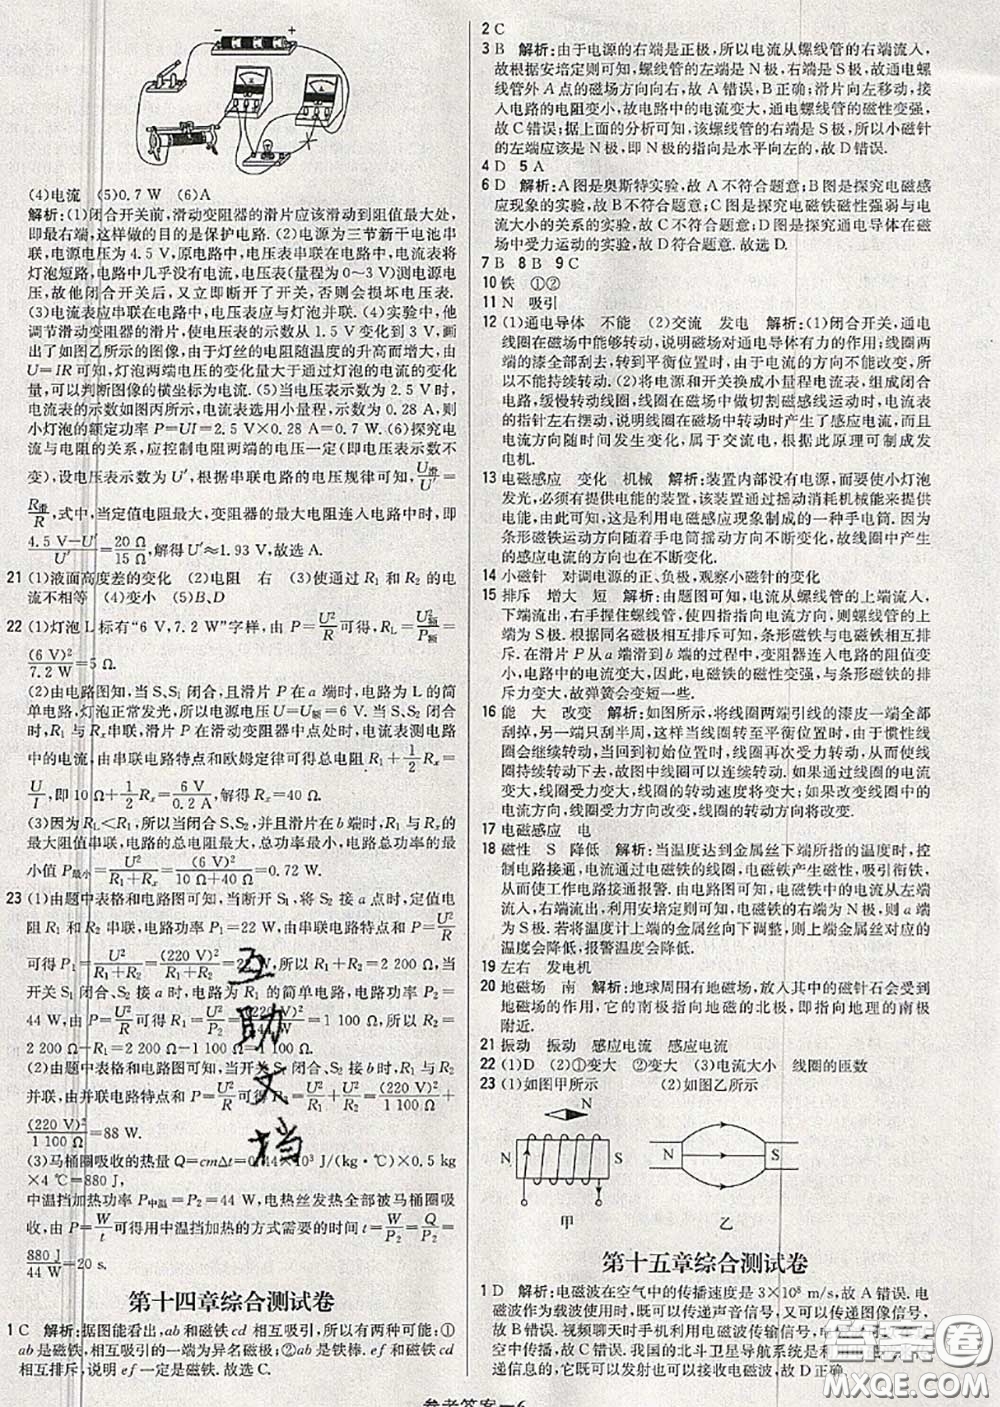 (4)电流 (5)0.7 W (6)A
解析:(1)闭合开关前,滑动变阻器的滑片应该滑动到阻值最大处,
即最右端,这样做的目的是保护电路.(2)电源为三节新干电池串
联,电源电压为 4.5 V,电压表串联在电路中,电流表将
灯泡短路,电路中几乎没有电流,电压表(量程为 0～3 V)测电源电
压,故他闭合开关后,又立即断开了开关,否则会损坏电压表.
(3)电流表应串联在电路中,电压表应与灯泡并联.(4)实验中,他
调节滑动变阻器的滑片,使电压表的示数从 1.5 V 变化到 3 V,画
出了如图乙所示的图像,由于灯丝的电阻随温度的升高而增大,由
U=IR 可知,灯泡两端电压的变化量大于通过灯泡的电流的变化
量,可以判断图像的横坐标为电流.(5)当电压表示数为 2.5 V 时,
电流表的示数如图丙所示,电流表选用小量程,示数为 0.28 A,则
小灯泡的额定功率 P=UI=2.5 V×0.28 A=0.7 W.(6)探究电
流与电阻的关系,应控制电阻两端的电压一定(即电压表示数不
变),设电压表示数为 U′,根据串联电路的电压规律可知,U滑/U′=
R滑/R,式中,当定值电阻最大,变阻器的最大电阻连入电路中时,即
(4.5 V-U′)/U′=20 Ω/15 Ω,解得 U′≈1.93 V,故选 A.
21 (1)液面高度差的变化 (2)电阻 右 (3)使通过 R₁ 和 R₂ 的电
流不相等 (4)变小 (5)B、D
22 (1)灯泡 L 标有“6 V,7.2 W”字样,由 P=U²/R可得,R_L=U额²/P额=
(6 V)²/7.2 W=5 Ω.
(2)由电路图知,当 S、S₁ 闭合,且滑片 P 在 a 端时,电路为 L 的简
单电路,灯泡正常发光,所以电源电压 U=U额=6 V.当 S、S₂ 闭合
时,R₁ 与 Rₓ串联,滑片 P 在滑动变阻器中点处时,电流表测电路
中的电流,由串联电路特点和欧姆定律可得总电阻 R₁+1/2Rₓ=
U/I,即 10 Ω+1/2Rₓ=6 V/0.2 A,解得 Rₓ=40 Ω.
(3)因为 R_L<R₁,所以当闭合 S、S₂,并且滑片在 b 端时,R₁ 与 Rₓ的
最大阻值串联,电路的总电阻最大、总功率最小,总功率的最
小值 P最小=U²/(R₁+Rₓ)=(6 V)²/(10 Ω+40 Ω)=0.72 W.
23 (1)由题中表格和电路图可知,当断开 S₁、S₂ 接 a 点时,定值电
阻 R₁ 和 R₂ 串联,电路功率 P₁=22 W,由串联电路特点和 P=U²/R
可得 P₁=U²/(R₁+R₂)=(220 V)²/(R₁+R₂)=22 W,所以 R₁+R₂=2 200 Ω,当
开关 S₁ 闭合、S₂ 接 a 时,电路为 R₁ 的简单电路,电路功率 P₂=
44 W,由 P=U²/R可得 R₁=U²/P₂=(220 V)²/44 W=1 100 Ω,所以 R₂=
2 200 Ω-R₁=2 200 Ω-1 100 Ω=1 100 Ω.
(2)由题中表格和电路图可知,当开关 S₁ 闭合、S₂ 接 b 时,电路为 R₁、R₂
并联,由并联电路特点和 P=U²/R可得 P=U²/R₁+U²/R₂=(220 V)²/1 100 Ω
+(220 V)²/1 100 Ω=88 W.
(3)马桶圈吸收的热量 Q=cmΔt=0.44×10³ J/(kg·℃)×0.5 kg
×4 ℃=880 J,
中温挡加热功率 P中温=P₂=44 W,电热丝发热全部被马桶圈吸
收,由 P=W/t可得用中温挡加热的方式需要的时间 t=W/P₂=Q/P₂=
880 J/44 W=20 s.
第十四章综合测试卷
1 C 解析:据图能看出,ab 和磁铁 cd 相互吸引,所以有两种可能:①
ab 是磁铁,相互吸引的一端为异名磁极;②ab 为铁棒.ef 和磁铁 cd
相互排斥,说明 ef 一定是磁铁.故选 C.
2 C
3 B 解析:由于电源的右端是正极,所以电流从螺线管的右端流入,
故根据安培定则可知,螺线管的左端是 N 极,右端是 S 极,故通电螺
线管外 A 点的磁场方向向右,故 A 错误,B 正确;滑片向左移动,
接入电路的电阻变小,故电路中的电流变大,通电螺线管的磁性变强,
故 C 错误;据上面的分析可知,该螺线管的右端是 S 极,所以小磁针
的左端应该是 N 极,即 N 极的指向是水平向左的,故 D 错误.
4 D 5 A
6 D 解析:A 图是奥斯特实验,故 A 不符合题意;B 图是探究电磁感
应现象的实验,故 B 不符合题意;C 图是探究电磁铁磁性强弱与电
流大小的关系的实验,故 C 不符合题意;D 图是探究通电导体在磁
场中受力运动的实验,故 D 符合题意.故选 D.
7 B 8 B 9 C
10 铁 ①②
11 N 吸引
12 (1)通电导体 不能 (2)交流 发电 解析:(1)闭合开关,通电
线圈在磁场中能够转动,说明磁场对通电导体有力的作用;线圈两
端的漆全部刮去,转到平衡位置时,由于电流的方向不能改变,所
以不能持续转动.(2)将电源和开关换成小量程电流表,组成闭合
电路,缓慢转动线圈,线圈在磁场中做切割磁感线运动时,电流表的
指针左右摆动,说明线圈在磁场中转动时产生了感应电流,由于感
应电流方向随时间发生变化,属于交流电,根据此原理可制成发
电机.
13 电磁感应 变化 机械 解析:装置内部没有电源,而要使小灯泡
发光,必须有提供电能的装置,该装置通过摇动消耗机械能来提供
电能,由此可知,这是利用电磁感应现象制成的一种手电筒.因为
条形磁铁运动方向随着手电筒摇动方向不断变化,故线圈中产生
的感应电流的方向也在不断变化.
14 小磁针 对调电源的正、负极,观察小磁针的变化
15 排斥 增大 短 解析:由题图可知,电流从螺线管的上端流入,
下端流出,右手握住螺线管,使四指指向电流方向,则螺线管的上
端为 S 极.根据同名磁极相互排斥可知,条形磁铁与电磁铁相互排
斥.在滑片 P 从 a 端滑到 b 端的过程中,变阻器的阻值变小,
电路中的电流变大,因此,电磁铁的磁性变强,与条形磁铁的排
斥力变大,故弹簧会变短一些.
16 能 大 改变 解析:如图所示,将线圈两端引线的漆皮一端全部
刮掉,另一端只刮半周,这样当线圈转至平衡位置时,由于惯性线
圈会继续转动,当回到初始位置时,线圈再次受力转动,从而使线圈
持续转动下去,故图中线圈可以持续转动.如果通过线圈的电流
变大,线圈受力变大,线圈的转动速度将变大;如果改变线圈中的
电流方向,线圈受力方向改变,线圈的转动方向将改变.
17 电磁感应 电
18 磁性 S 降低 解析:当温度达到金属丝下端所指的温度时,
控制电路接通,电磁铁中有电流通过,电磁铁产生磁性,吸引衔铁,
从而使工作电路接通报警.由题图可知,电磁铁中的电流从左端
流入,右端流出,利用安培定则可知,电磁铁的右端为 N 极,则 a 端
为 S 极.若将温度计上端的金属丝向下调整,则金属丝下端所指的
温度会降低,报警温度会降低.
19 左右 发电机
20 地磁场 南 解析:地球周围有地磁场,放入其中的磁针石会受到
地磁场的作用,它的南极指向地磁的北极,即指向地理的南极
附近.
21 振动 振动 感应电流 感应电流
22 (1)D (2)①变大 ②变大 (3)电流大小 线圈的匝数
23 (1)如图甲所示 (2)如图乙所示
N
N S
甲
N S
乙
第十五章综合测试卷
1 D 解析:电磁波在空气中的传播速度是 3×10⁸ m/s,故 A 错误.
电磁波作为信息的载体,既可以传递声音信号,又可以传递图像信号,故
B 错误.视频聊天时手机利用电磁波传递信息,电磁波可以在真
空中传播,故 C 错误.我国的北斗卫星导航系统是利用电磁波传
递信息的,它既可以发射也可以接收电磁波,故 D 正确.
参考答案—6
互
助
文
档
答案圈
MXQE.COM